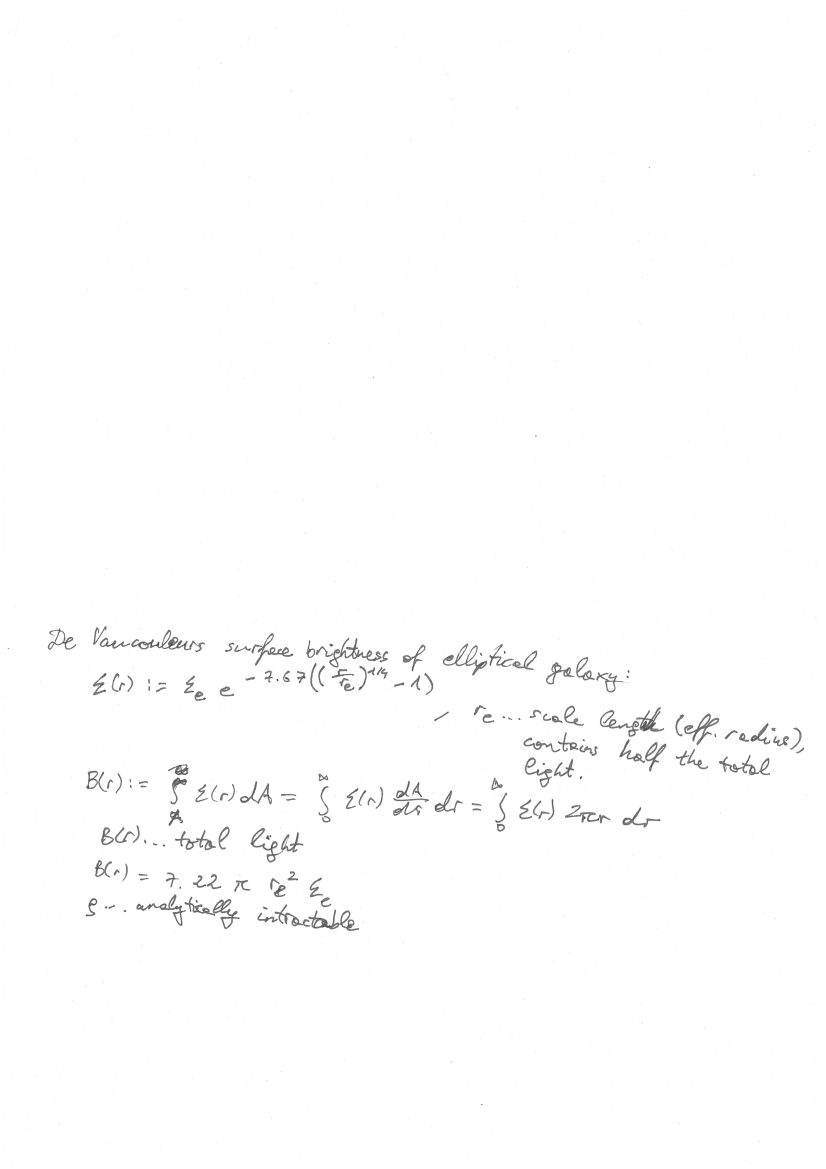 De Vaucouleurs surface brightness of elliptical galaxy:
Σ(r) := Σ_e e^{-7.67((r/r_e)^{1/4} - 1)}
, r_e ... scale length (eff. radius),
contains half the total
light.
B(r) := ∫ Σ(r) dA = ∫_0^∞ Σ(r) dA/dr dr = ∫_0^∞ Σ(r) 2πr dr
B(r)... total light
B(r) = 7.22 π r_e^2 Σ_e
ρ ... analytically intractable